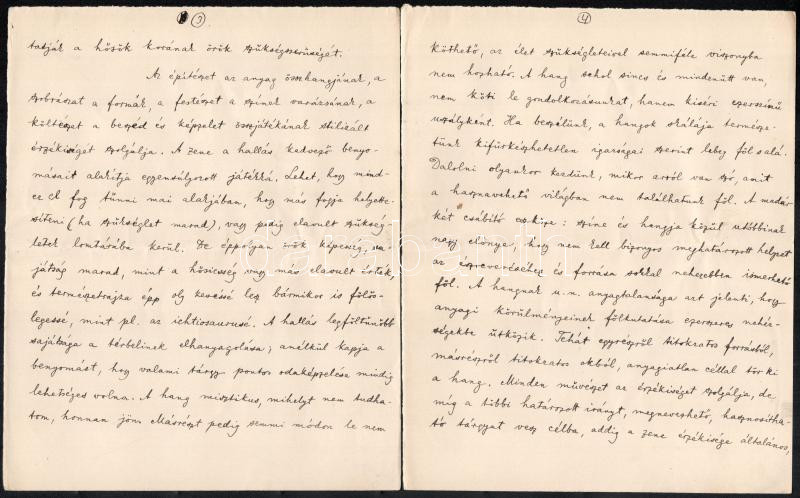 3
tatják a hősök korának örök szükségszerűségét.
Az építészet az anyag összhangjának, a
szobrászat a formák, a festészet a színek varázsának, a
költészet a beszéd és képzelet összjátékának stilizált
érzékiségét szolgálja. A zene a hallás kedvező benyo-
másait alakítja egyensúlyozott játékká. Lehet, hogy mind-
ez el fog tűnni mai alakjában, hogy más fogja helyette-
síteni (ha szükséglet marad), vagy pedig elavult szükség-
letek lomtárába kerül. De éppolyan örök képesség, va-
játság marad, mint a hősiesség vagy más elavult érték,
és természetrajza épp oly kevéssé lesz bármikor is fölös-
legessé, mint pl. az ichtiosaurusé. A hallás legföltűnőbb
sajátsága a térbelinek elhanyagolása; anélkül kapja a
benyomást, hogy valami tárgy pontos odaképzelése mindig
lehetséges volna. A hang misztikus, mihelyt nem tudha-
tom, honnan jön. Másrészt pedig semmi módon le nem
4
köthető, az élet szükségleteivel semmiféle viszonyba
nem hozható. A hang sehol sincs és mindenütt van,
nem köti le gondolkozásunkat, hanem kíséri ezerszínű
uszályként. Ha beszélünk, a hangok skálája természe-
tünk kifürkészhetetlen igazságai szerint lebeg föl s alá.
Dalolni olyankor kezdünk, mikor arról van szó, amit
a hasznavehető világban nem találhatunk föl. A madár
két csábító eszköze: színe és hangja közül utóbbinak
nagy előnye, hogy nem kell bizonyos meghatározott helyzet
az észrevevéséhez és forrása sokkal nehezebben ismerhető
föl. A hangnak u.n. anyagtalansága azt jelenti, hogy
anyagi körülményeinek fölkutatása ezerszeres nehéz-
ségekbe ütközik. Tehát egyrészről titokzatos forrásból,
másrészről titokzatos okból, anyagiatlan céllal tör ki
a hang. Minden művészet az érzékiséget szolgálja, de
míg a többi határozott irányt, megnevezhető, hasznosítha-
tó tárgyat vesz célba, addig a zene érzékisége általános,
darabanth